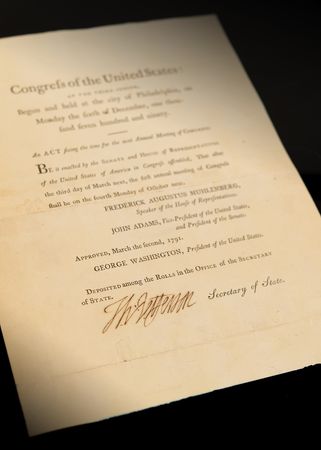 Congreſs of the United States:
AT THE THIRD SESSION,
Begun and held at the city of Philadelphia, on
Monday the ſixth of December, one thou-
ſand ſeven hundred and ninety.
An ACT fixing the time for the next Annual Meeting of CONGRESS.
BE it enacted by the SENATE and HOUSE of REPRESENTATIVES
of the United States of America in Congreſs aſſembled, That after
the third day of March next, the firſt annual meeting of Congreſs
ſhall be on the fourth Monday of October next.
FREDERICK AUGUSTUS MUHLENBERG,
Speaker of the Houſe of Repreſentatives.
JOHN ADAMS, Vice-Preſident of the United States,
and Preſident of the Senate.
APPROVED, March the ſecond, 1791.
GEORGE WASHINGTON, Preſident of the United States.
DEPOSITED among the ROLLS in the OFFICE of the SECRETARY
of STATE.
Th: Jefferson Secretary of State.